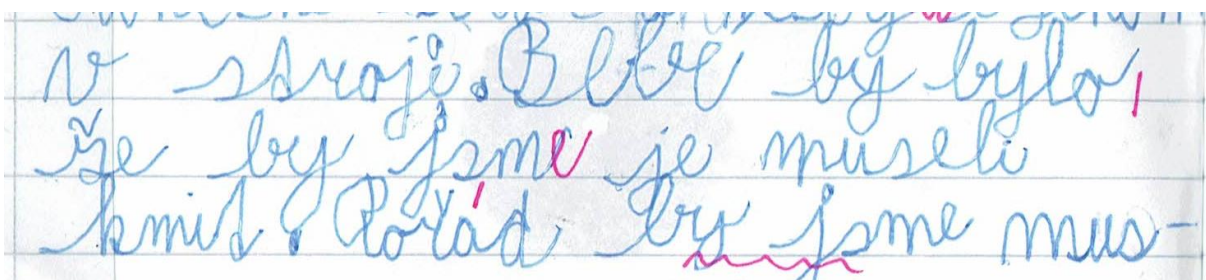 v stroji. Blbé by bylo,
že by jsme je museli
krmit. Pořád by jsme mus-